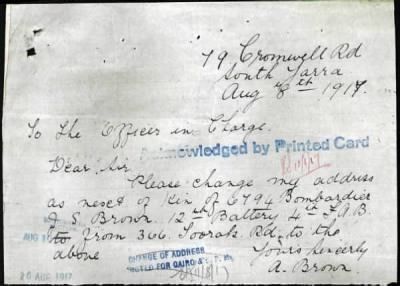 79 Cromwell Rd
South Yarra
Aug 8th 1917.
To The Officer in Charge.
Acknowledged by Printed Card
Dear Sir
Please change my address
as nexct of Kin of 6794 Bombardier
J. S. Brown. 12th Battery 4th F.A.B.
from 306. Toorak Rd, to the
above
Yours Sincerely
A. Brown.
CHANGE OF ADDRESS
NOTED FOR CAIRO &
10 AUG 1917